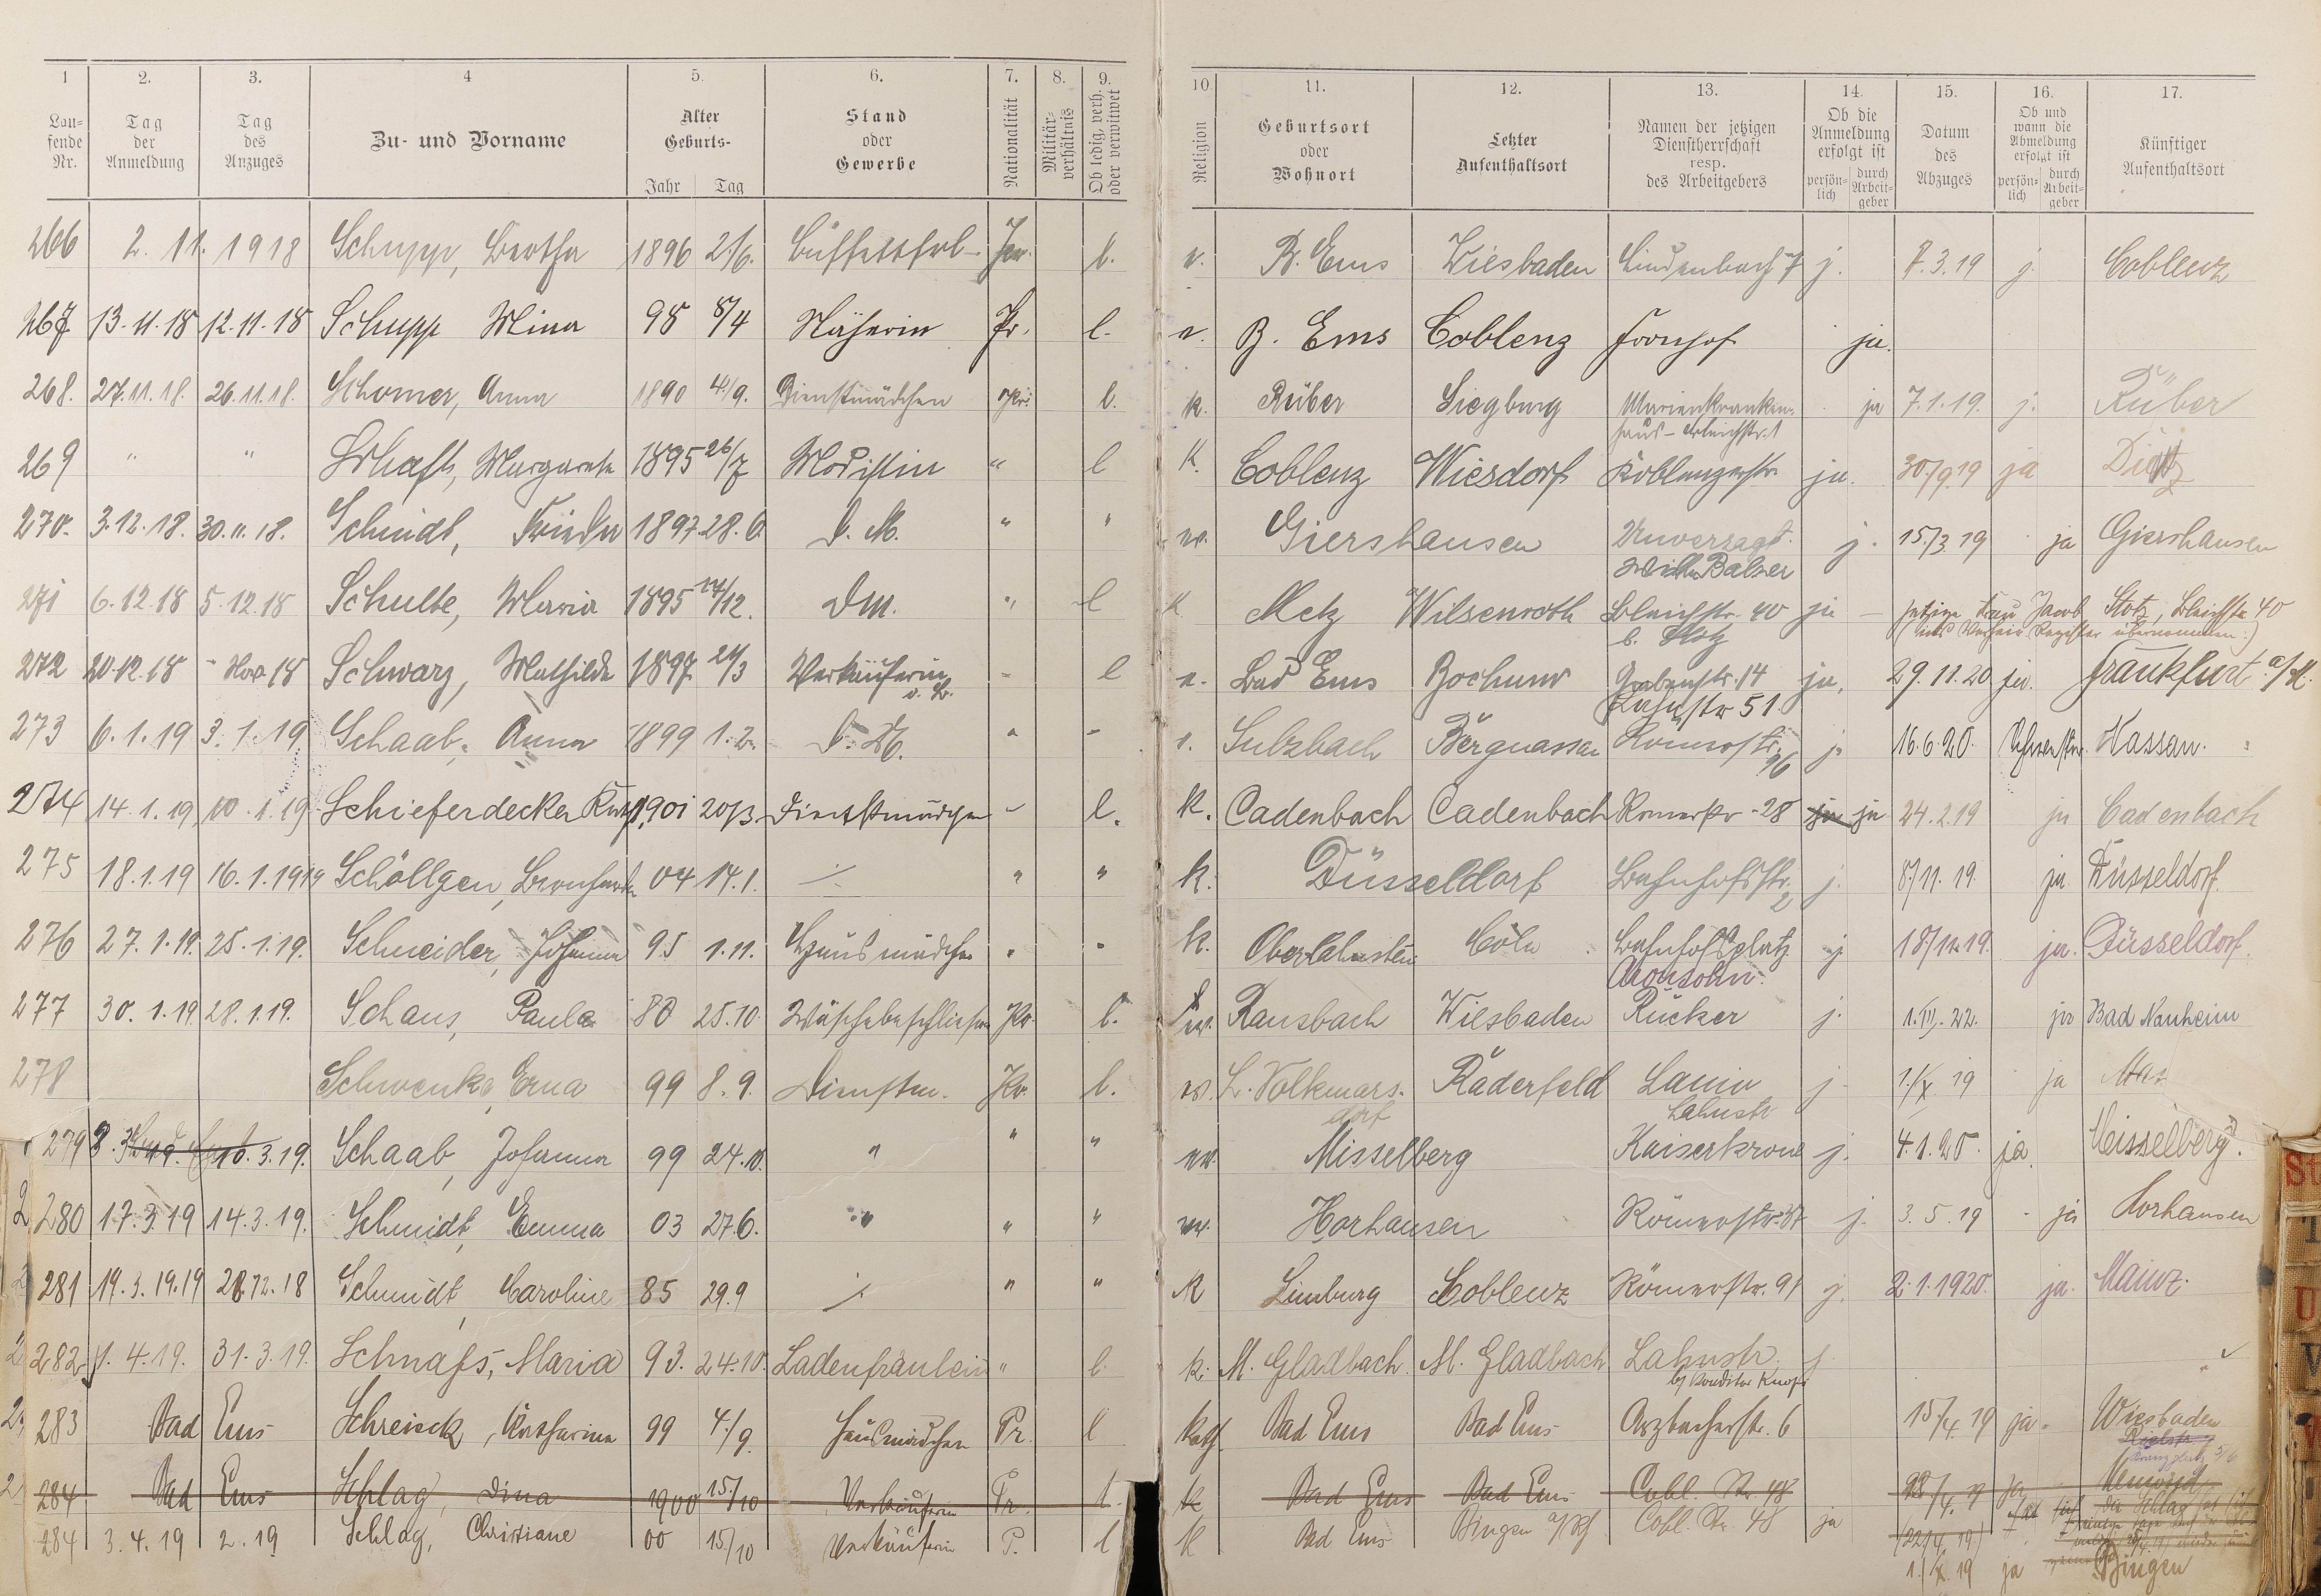 1 2. 3. 4 5. 6. 7. 8. 9. 10 11. 12. 13. 14. 15. 16. 17.
Laufende Nr. Tag der Anmeldung Tag des Anzuges Zu- und Vorname Alter Geburts- Jahr Tag Stand oder Gewerbe Nationalität Militärverhältnis Ob ledig, verh. oder verwitwet Religion Geburtsort oder Wohnort Letzter Aufenthaltsort Namen der jetzigen Dienstherrschaft resp. des Arbeitgebers Ob die Anmeldung erfolgt ist persönlich durch Arbeitgeber Datum des Abzuges Ob und wann die Abmeldung erfolgt ist persönlich durch Arbeitgeber Künftiger Aufenthaltsort
266 2. 11. 1918 Schupp, Bertha 1896 2/6. Büffettfrl. l. B. Ems Wiesbaden Lindenbach 7 j. 7.3.19 j. Coblenz
267 13.11.18 12.11.18 Schupp Mina 95 8/4 Näherin Pr. l. B. Ems Coblenz Fronhof ja.
268. 27.11.18. 26.11.18. Schomer, Anna 1890 4/9. Dienstmädchen l. k. Rüber Siegburg Marienkranken-
haus ja 7.1.19. j. Rüber
269 " " Schaft, Margarete 1895 26/7 Modistin " l K. Coblenz Wiesdorf Koblenzerstr. ja. 30/9.19 ja Dietz
270. 3.12.18. 30.11.18. Schmidt, Frieda 1897 28.6. D. M. " " Giershausen Unverzagt.
Balzer j. 15./3.19 ja Giershausen
271 6.12.18 5.12.18 Schulte, Maria 1895 14/12. DM. " l k Metz Wilsenroth Bleichstr. 40 ja — jetzige Frau Jacob Stotz, Bleichstr. 40
b. Stotz
272 20.12.18 Nov 18 Schwarz, Mathilde 1897 24/3 Verkäuferin l Bad Ems Bochum Grabenstr. 14 ja, 29.11.20 ja. Frankfurt a/M.
Lahnstr 51.
273 6.1.19 3.1.19 Schaab, Anna 1899 1.2. D. M. " - Sulzbach Bergnassau Römerstr. 96 j. 16.6.20. Nassau.
274 14.1.19 10.1.19 Schieferdecker 1901 20/3. Dienstmädchen l. k. Cadenbach Cadenbach Römerstr. 28 ja ja 24.2.19 ja Cadenbach
275 18.1.19 16.1.1919 Schöllgen, 04 14.1. " " k. Düsseldorf Bahnhofstr. 2 j. 8/11.19. ja. Düsseldorf.
276 27.1.19. 25.1.19. Schneider, Johanna 95 1.11. Hausmädchen " " k. Oberlahnstein Cöln Bahnhofsplatz j. 18/12.19. ja. Düsseldorf.
Aronsohn.
277 30.1.19. 28.1.19. Schaus, Paula 80 25.10. Pr. l. Ransbach Wiesbaden Rücker j. 1.III.22. ja Bad Nauheim
278 Schwenke, Erna 99 8.9. Dienstm. Pr. l. L. Volkmars-
dorf Räderfeld Lahnstr j. 1./X.19 ja
279 3.19. Schaab, Johanna 99 24.10. " " " Misselberg Kaiserkrone j. 4.1.20. ja. Misselberg.
280 17.3.19 14.3.19. Schmidt, Emma 03 27.6. " " " Horhausen Römerstr. 37 j. 3.5.19 - ja Horhausen
281 19.3.19.19 28.12.18 Schmidt, Caroline 85 29.9 " " K Limburg Coblenz Römerstr. 91 j. 2.1.1920. ja. Mainz.
282 1.4.19. 31.3.19. Schnafs, Maria 93. 24.10. Ladenfräulein " l k. M. Gladbach. M. Gladbach Lahnstr. j
bj Konditor Knopp
283 Bad Ems Schreieck, Katharina 99 4/9. Hausmädchen Pr. l kath. Bad Ems Bad Ems Arzbacherstr. 6 15/4.19 ja. Wiesbaden
284 Bad Ems Schlag, Dina 1900 15/10 Verkäuferin Pr. l. k Bad Ems Bad Ems Cobl. Str. 48 ja Neuwied
284 3.4.19 2.19 Schlag, Christiane 00 15./10 Verkäuferin P. l k Bad Ems Bingen a/Rh Cobl. Str. 48 ja (22/4.19)
1./X.19 ja Bingen